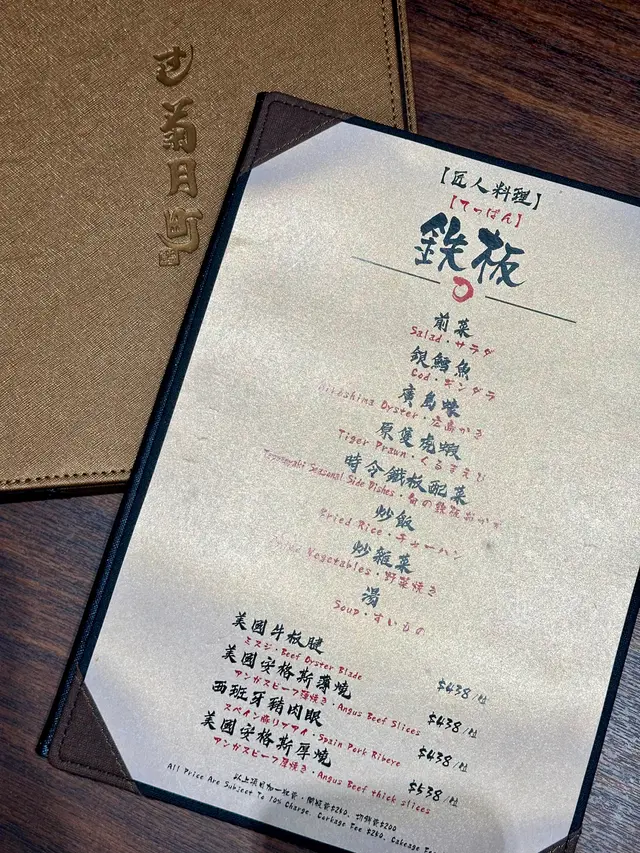 菊月町
【匠人料理】
【てっぱん】
鉄板
前菜
Salad・サラダ
銀鱈魚
Cod・ギンダラ
廣島蠔
Hiroshima Oyster・広島かき
原隻虎蝦
Tiger Prawn・くるまえび
時令鐵板配菜
Teppanyaki Seasonal Side Dishes・春の鉄板おかず
炒飯
Fried Rice・チャーハン
炒雜菜
Vegetables・野菜焼き
湯
Soup・すいもの
美國牛板腱
ミスジ・Beef Oyster Blade
$438/位
美國安格斯薄燒
アンガスビーフ薄焼き・Angus Beef Slices
$438/位
西班牙豬肉眼
スペイン豚リブアイ・Spain Pork Ribeye
$438/位
美國安格斯厚燒
アンガスビーフ厚焼き・Angus Beef thick slices
$538/位
以上項目加一收費，開瓶費$260，切餅費$200
All Price Are Subject To 10% Charge. Corkage Fee $260, Cakeage